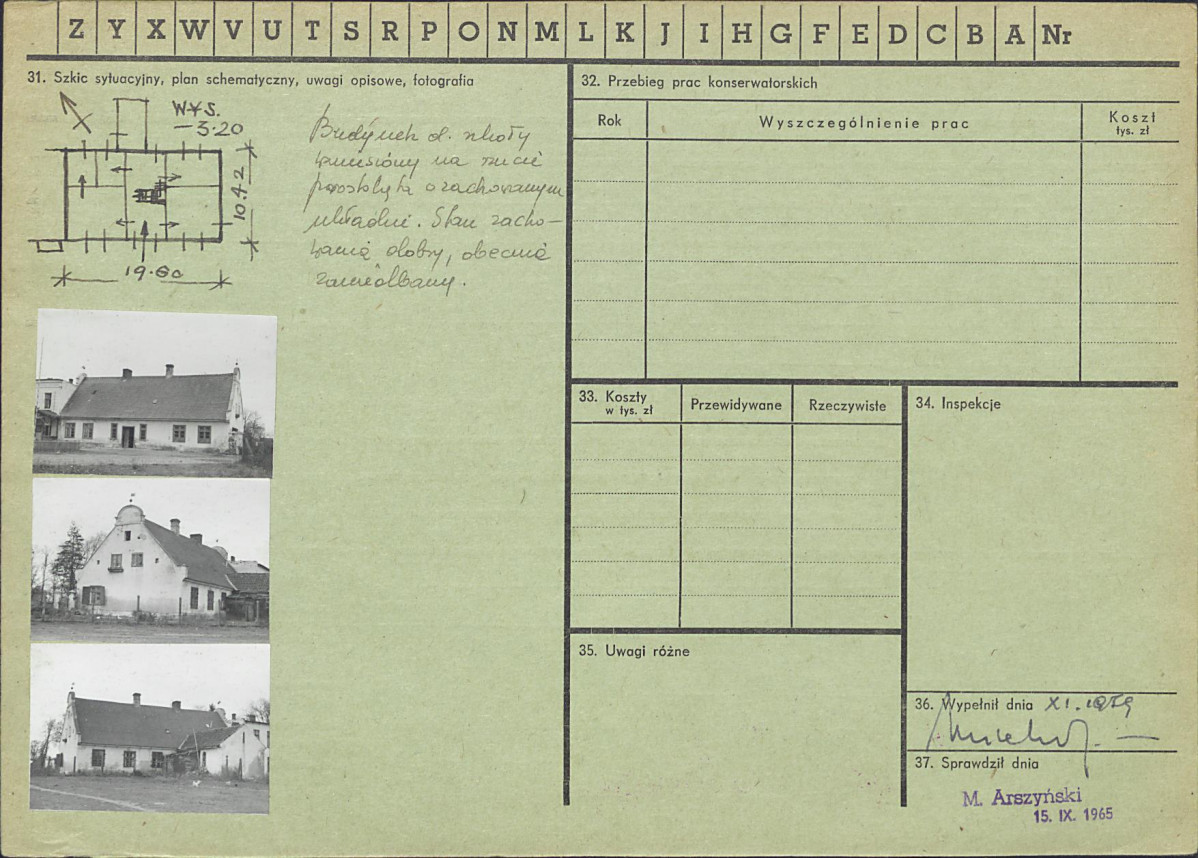 Z Y X W V U T S R P O N M L K J I H G F E D C B A Nr
31. Szkic sytuacyjny, plan schematyczny, uwagi opisowe, fotografia
WYS.
3.20
10.42
19.60
Budynek d. szkoły
wzniesiony na rzucie
prostokąta o zachowanym
układzie. Stan zacho-
wania dobry, obecnie
zaniedbany.
32. Przebieg prac konserwatorskich
Rok
Wyszczególnienie prac
Koszt
tys. zł
33. Koszty
w tys. zł
Przewidywane
Rzeczywiste
34. Inspekcje
35. Uwagi różne
36. Wypełnił dnia XI.1959
37. Sprawdził dnia
M. Arszyński
15. IX. 1965